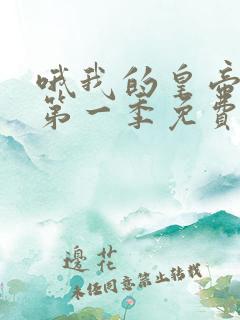 哦我的皇帝
第一季免費
邊花
未经同意禁止转载